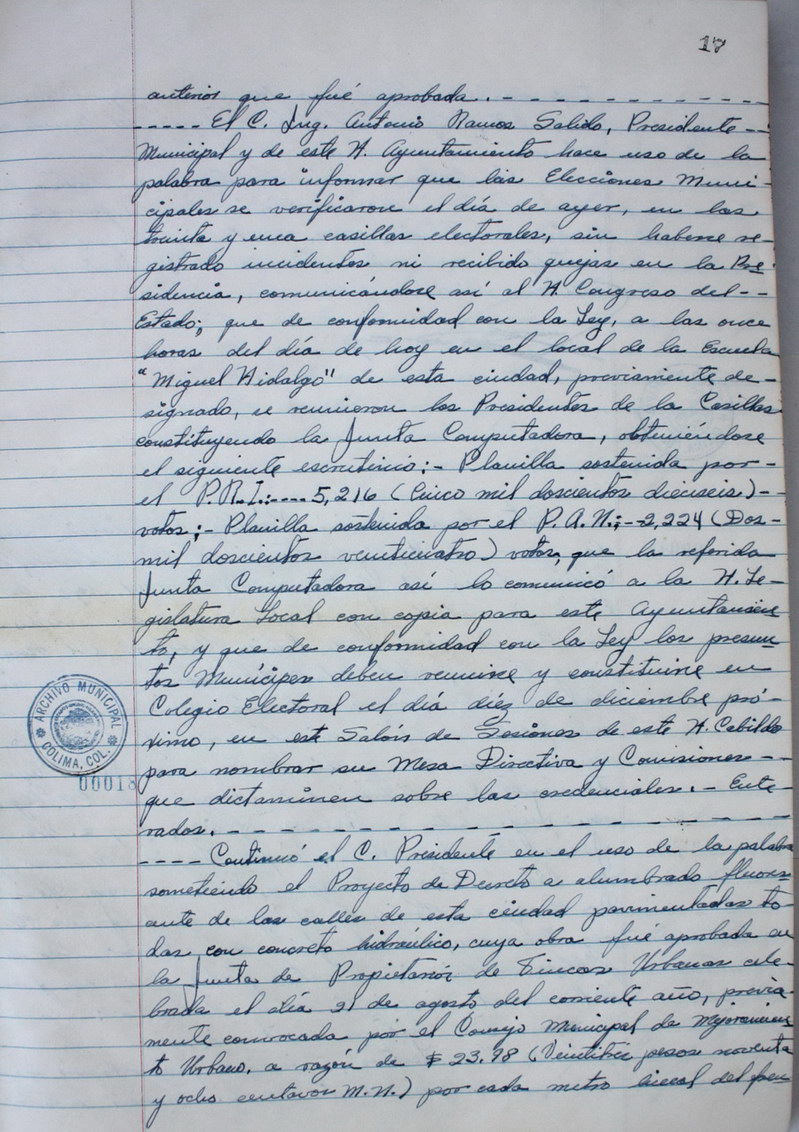 17
anterior que fué aprobada. - - - - - - - - - - - -
- - - - - El C. Ing. Antonio Ramos Salido, Presidente - -
Municipal y de este H. Ayuntamiento hace uso de la
palabra para informar que las Elecciones Muni-
cipales se verificaron el día de ayer, en las
treinta y casillas electorales, sin haberse re-
gistrado incidentes ni recibido quejas en la Pre-
sidencia, comunicándose así al H. Congreso del - -
Estado; que de conformidad con la Ley, a las once
horas del día de hoy en el local de la Escuela
"Miguel Hidalgo" de esta ciudad, previamente de-
signado, se reunieron los Presidentes de la Casillas
constituyendo la Junta Computadora, obteniéndose
el siguiente escrutinio; - Planilla sostenida por -
el P.R.I.: - - - - 5,216 (Cinco mil doscientos dieciseis) - -
votos; - Planilla sostenida por el P.A.N.; - 2,224 (Dos -
mil doscientos veinticuatro) votos, que la referida
Junta Computadora así lo comunicó a la H. Le-
gislatura Local con copia para este Ayuntamien
to, y que de conformidad con la Ley los presun
tos Munícipes deben reunirse y constituirse en
Colegio Electoral el día diéz de diciembre pró-
ximo, en este Salón de Sesiones de este H. Cabildo
para nombrar su Mesa Directiva y Comisiones - -
que dictaminen sobre las credenciales. - Ente-
rados. - - - - - - - - - - - - - - - -
- - - - Continuó el C. Presidente en el uso de la palabra
sometiendo el Proyecto de Decreto a alumbrado fluores
cente de las calles de esta ciudad pavimentadas to
das con concreto hidráulico, cuya obra fué aprobada en
la Junta de Propietarios de Fincas Urbanas cele-
brada el día 21 de agosto del corriente año, previa-
mente convocada por el Consejo Municipal de Mejoramien
to Urbano, a razón de $ 23.98 (Veintitres pesos noventa
y ocho centavos M.N.) por cada metro lineal del fren
ARCHIVO MUNICIPAL
COLIMA, COL.
00018